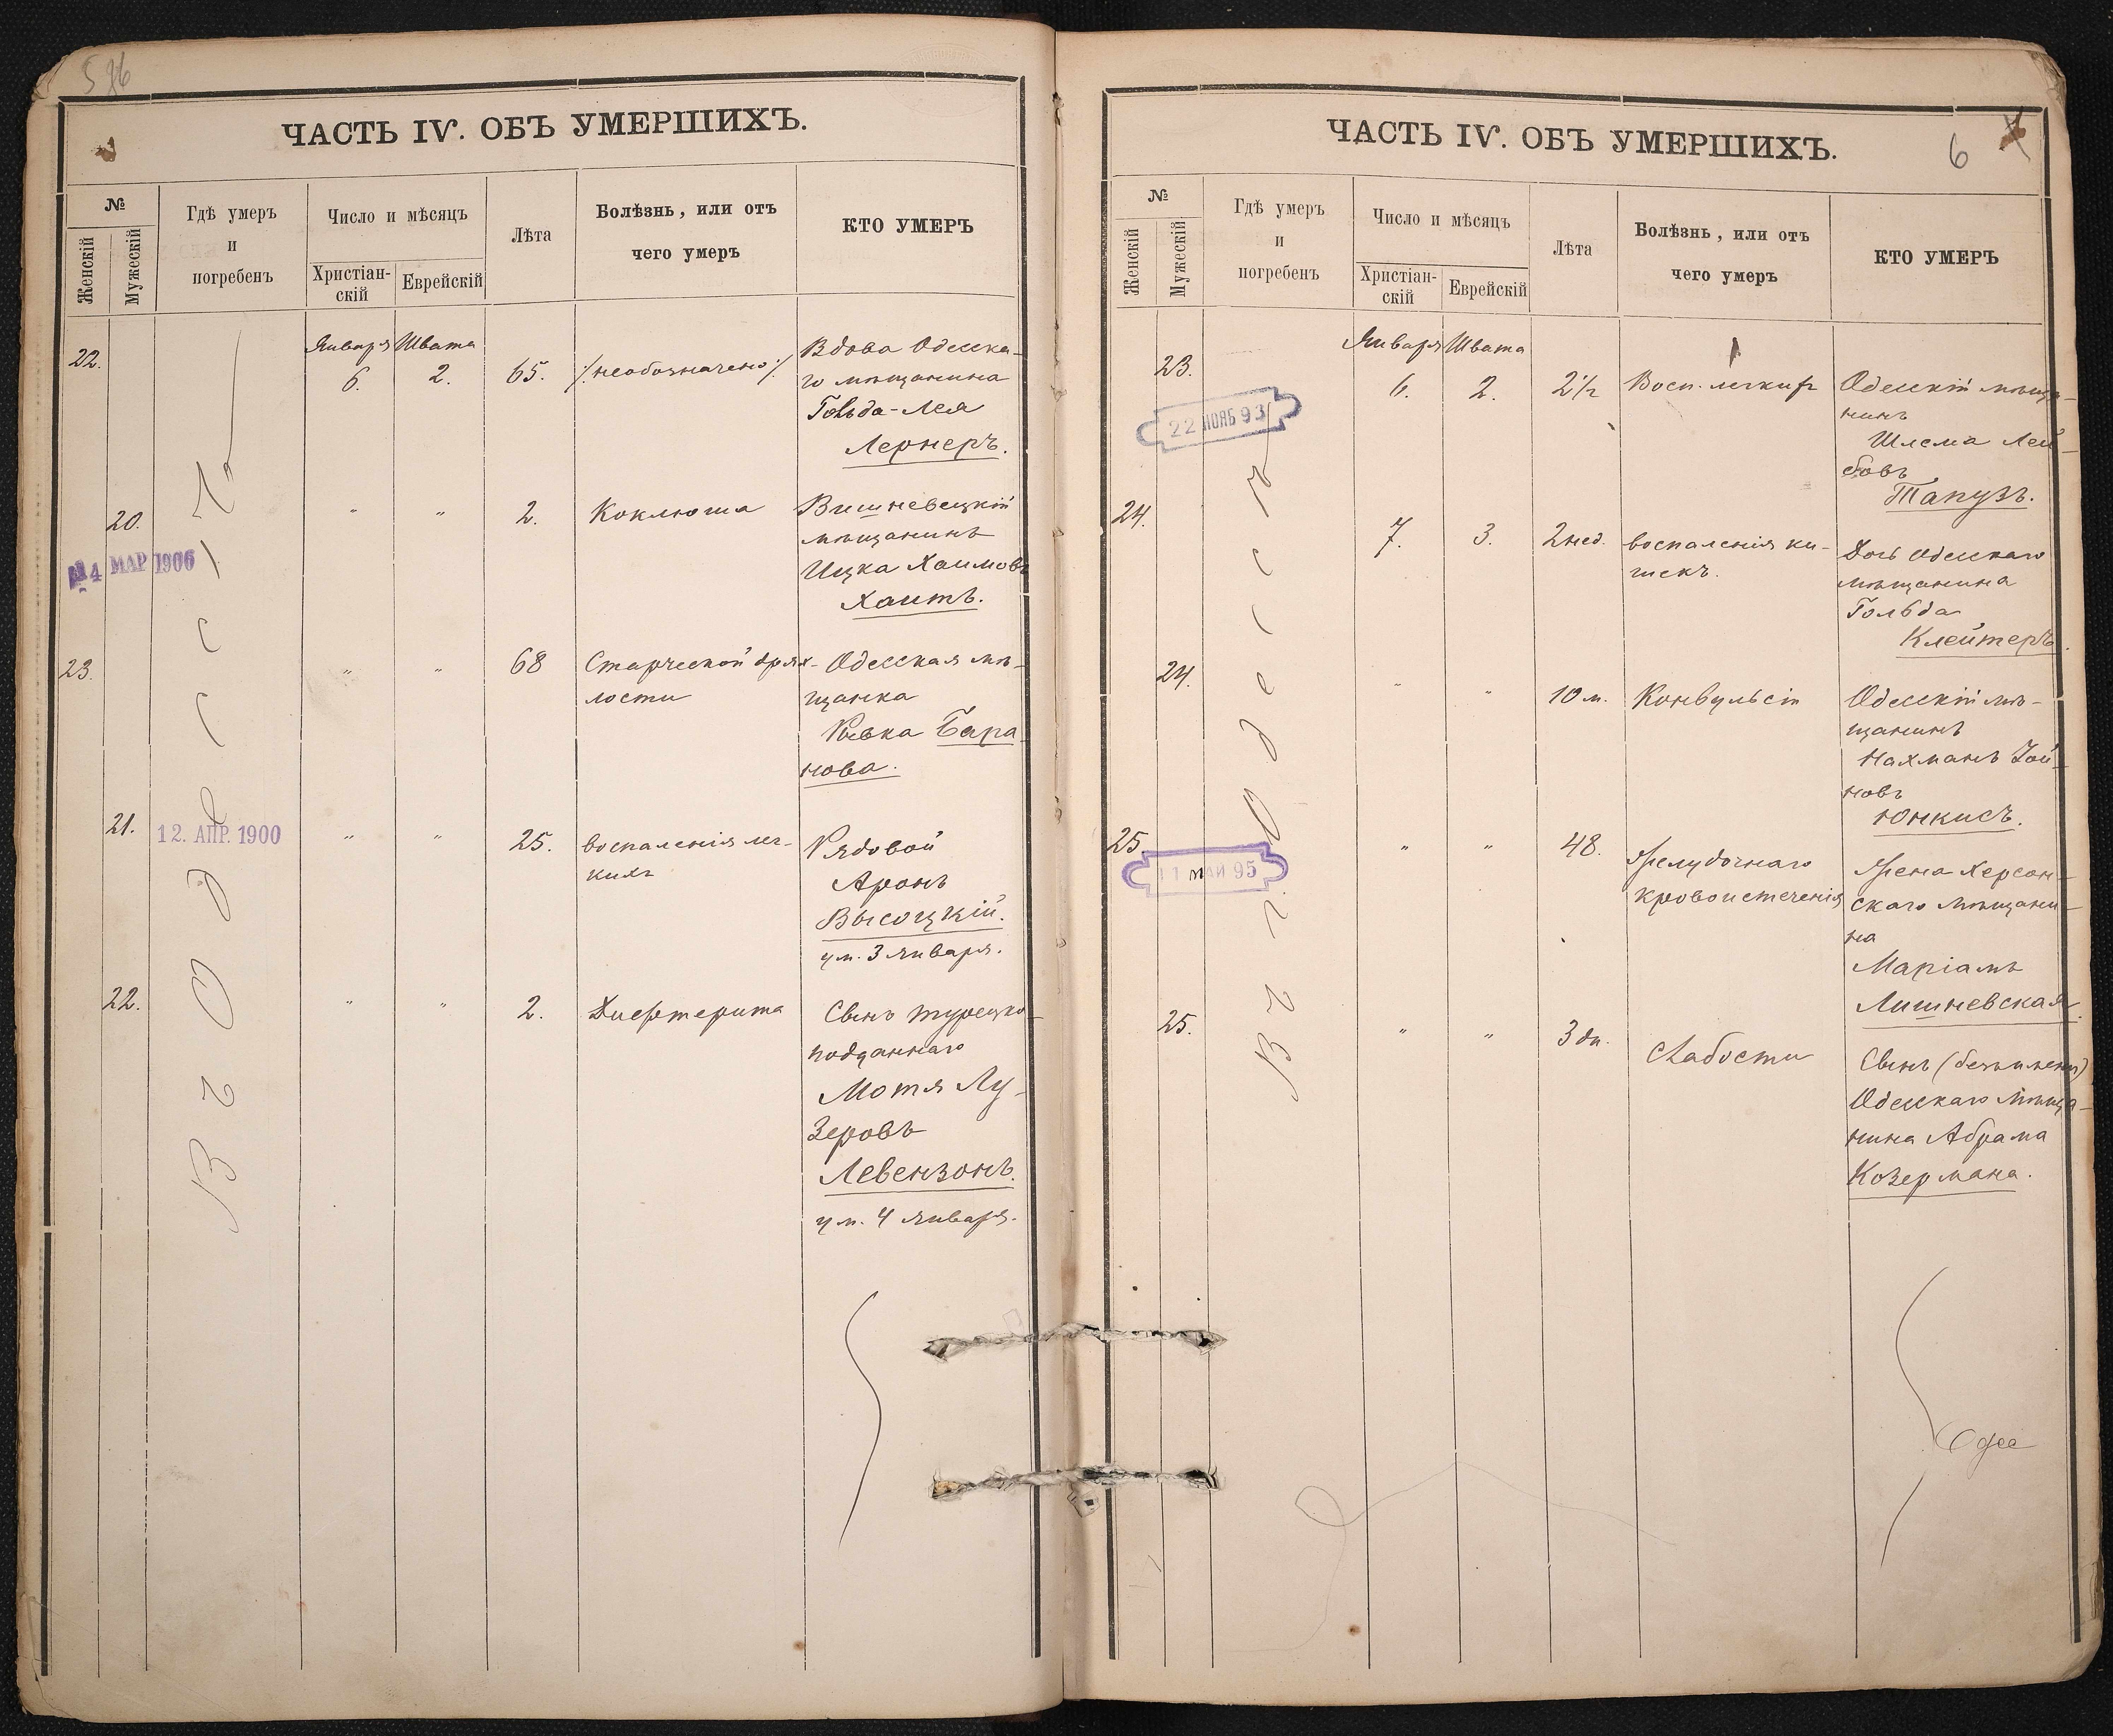 586
ЧАСТЬ IV. ОБЪ УМЕРШИХЪ.
№
Женскій
Мужескій
Гдѣ умеръ
и
погребенъ
Число и мѣсяцъ
Христіан-
скій
Еврейскій
Лѣта
Болѣзнь, или отъ
чего умеръ
КТО УМЕРЪ
Въ г. Одессѣ
22.
Января
6.
Швата
2.
65.
/необозначено/
Вдова Одесска-
го мѣщанина
Гольда-Лея
Лернеръ.
20.
4 МАР 1906
"
"
2.
Коклюша
Вишневецкій
мѣщанинъ
Ицка Хаимовъ
Хаитъ.
23.
"
"
68
Старческой дрях-
лости
Одесская мѣ-
щанка
Ривка Бара-
нова.
21.
12. АПР. 1900
"
"
25.
воспаленія лег-
кихъ
Рядовой
Аронъ
Высоцкій.
ум. 3 Января.
22.
"
"
2.
Дифтерита
Сынъ турецко-
подданнаго
Мотя Лу-
зеровъ
Левензонъ.
ум. 4 Января.
ЧАСТЬ IV. ОБЪ УМЕРШИХЪ.
6
№
Женскій
Мужескій
Гдѣ умеръ
и
погребенъ
Число и мѣсяцъ
Христіан-
скій
Еврейскій
Лѣта
Болѣзнь, или отъ
чего умеръ
КТО УМЕРЪ
Въ г. Одессѣ
23.
22 НОЯБ 93
Января
6.
Швата
2.
2 1/2
Восп. легкихъ
Одесскій мѣща-
нинъ
Шлема Лей-
бовъ
Тапузъ.
24.
7.
3.
2 нед.
воспаленія ки-
шекъ.
Дочь Одесскаго
мѣщанина
Гольда
Клейтеръ.
24.
"
"
10 м.
Конвульсіи
Одесскій мѣ-
щанинъ
Нахманъ Іой-
новъ
Юнкисъ.
25.
11 МАЙ 95
"
"
48.
Желудочнаго
кровоистеченія
Жена Херсон-
скаго мѣщани-
на
Маріамъ
Лишневская.
25.
"
"
3 дн.
Слабости
Сынъ (безъ имени)
Одесскаго мѣща-
нина Абрама
Козермана.
Одес